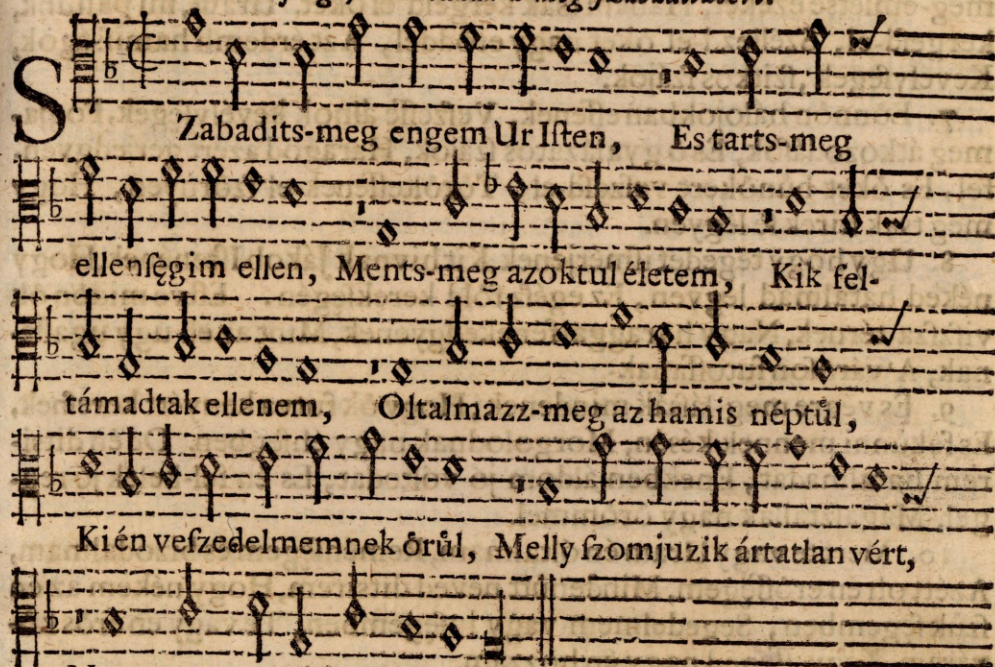 SZabadits-meg engem Ur Iſten, Es tarts-meg
ellenſęgim ellen, Ments-meg azoktul életem, Kik fel-
támadtak ellenem, Oltalmazz-meg az hamis néptůl,
Ki én veſzedelmemnek ůrůl, Melly ſzomjuzik ártatlan vért,